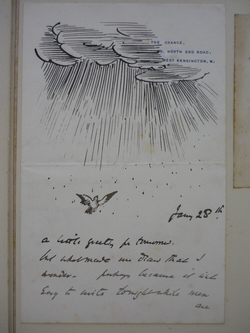 THE GRANGE,
NORTH END ROAD,
WEST KENSINGTON, W.
Jany 28th
a little greeting for tomorrow.
but what made me draw that I
wonder - perhaps because it isnt
easy to write tonight while men
are